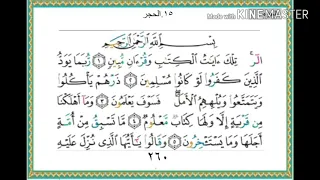 ١٥ـ الحجر
Made with KINEMASTER
بِسْمِ اللَّهِ الرَّحْمَٰنِ الرَّحِيمِ
الٓر ۚ تِلْكَ ءَايَٰتُ الْكِتَٰبِ وَقُرْءَانٍ مُّبِينٍ ١ رُّبَمَا يَوَدُّ
الَّذِينَ كَفَرُوا لَوْ كَانُوا مُسْلِمِينَ ٢ ذَرْهُمْ يَأْكُلُوا
وَيَتَمَتَّعُوا وَيُلْهِهِمُ الْأَمَلُ ۖ فَسَوْفَ يَعْلَمُونَ ٣ وَمَا أَهْلَكْنَا
مِن قَرْيَةٍ إِلَّا وَلَهَا كِتَابٌ مَّعْلُومٌ ٤ مَّا تَسْبِقُ مِنْ أُمَّةٍ
أَجَلَهَا وَمَا يَسْتَـْٔخِرُونَ ٥ وَقَالُوا يَٰٓأَيُّهَا الَّذِي نُزِّلَ عَلَيْهِ
٢٦٠